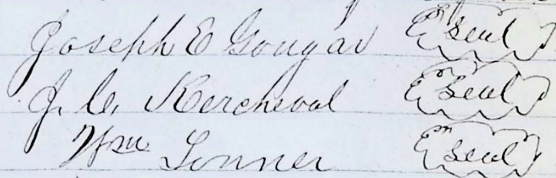 Joseph E Gougar seal
J. C. Kercheval seal
Wm Lonner seal